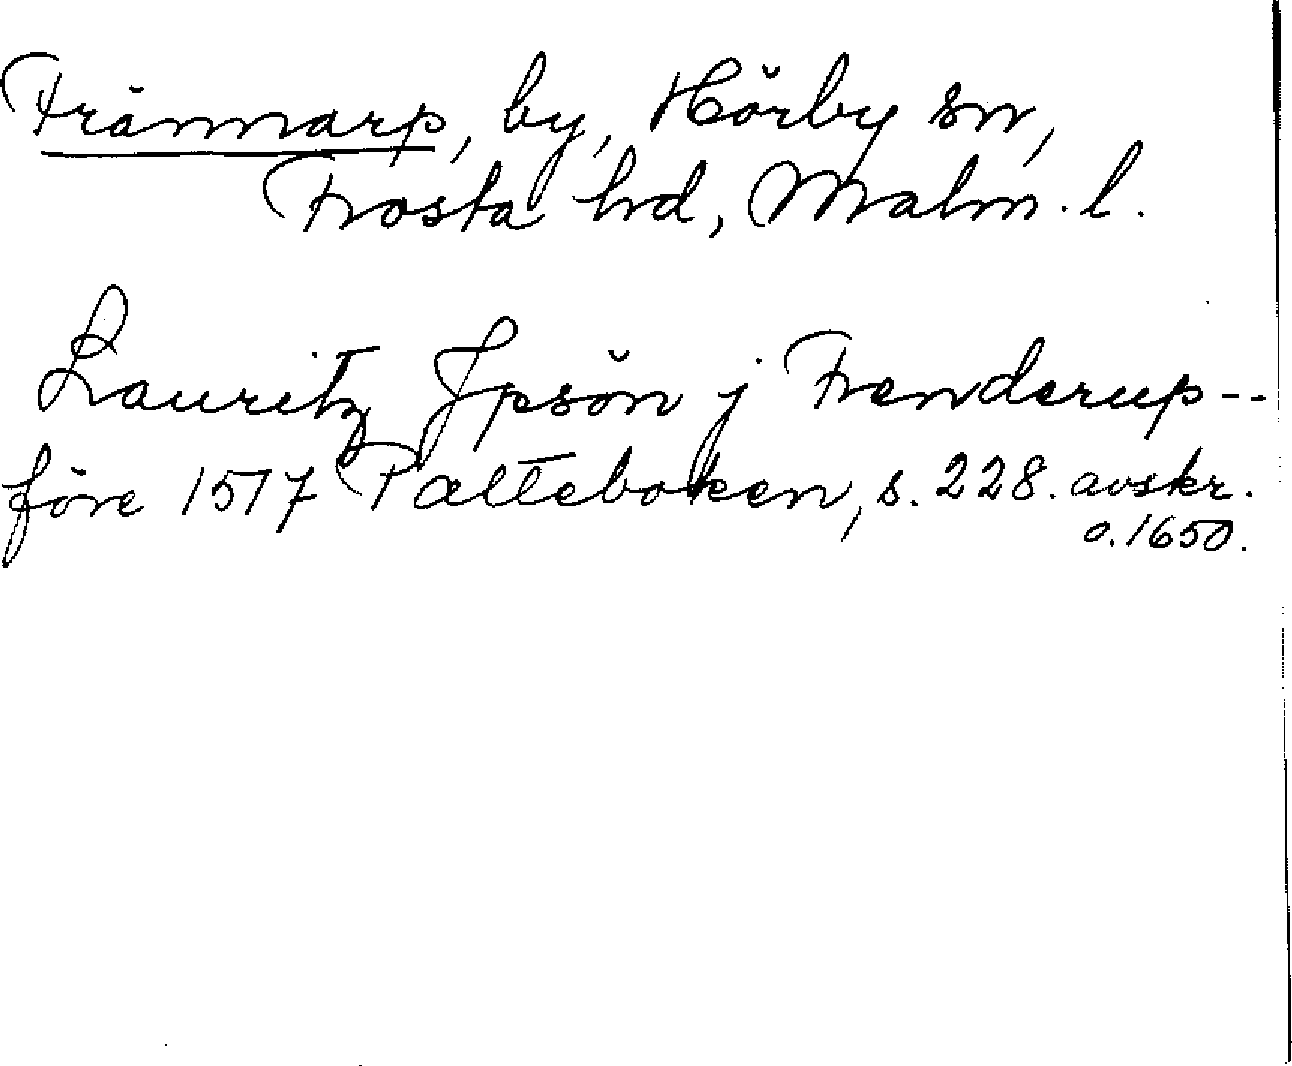 Frännarp, by, Hörby sn,
Frosta hd, Malm. l.
Lauritz Jpsön j Frenderup--
före 1517 Palteboken, s. 228. avskr.
o. 1650.